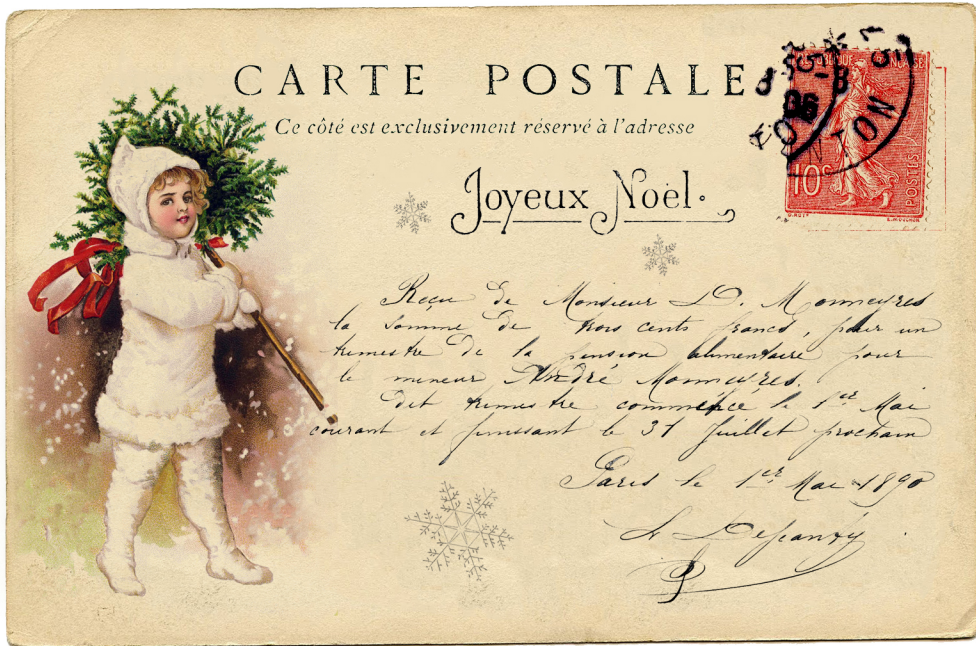 CARTE POSTALE
Ce côté est exclusivement réservé à l'adresse
Joyeux Noël.
REPUBLIQUE FRANÇAISE
10c
POSTES
06
Reçu de Monsieur D.
la somme de trois cents francs, pour un
trimestre de la pension alimentaire pour
le mineur André
Dit trimestre commencé le 1er Mai
courant et finissant le 31 Juillet prochain
Paris le 1er Mai 1890